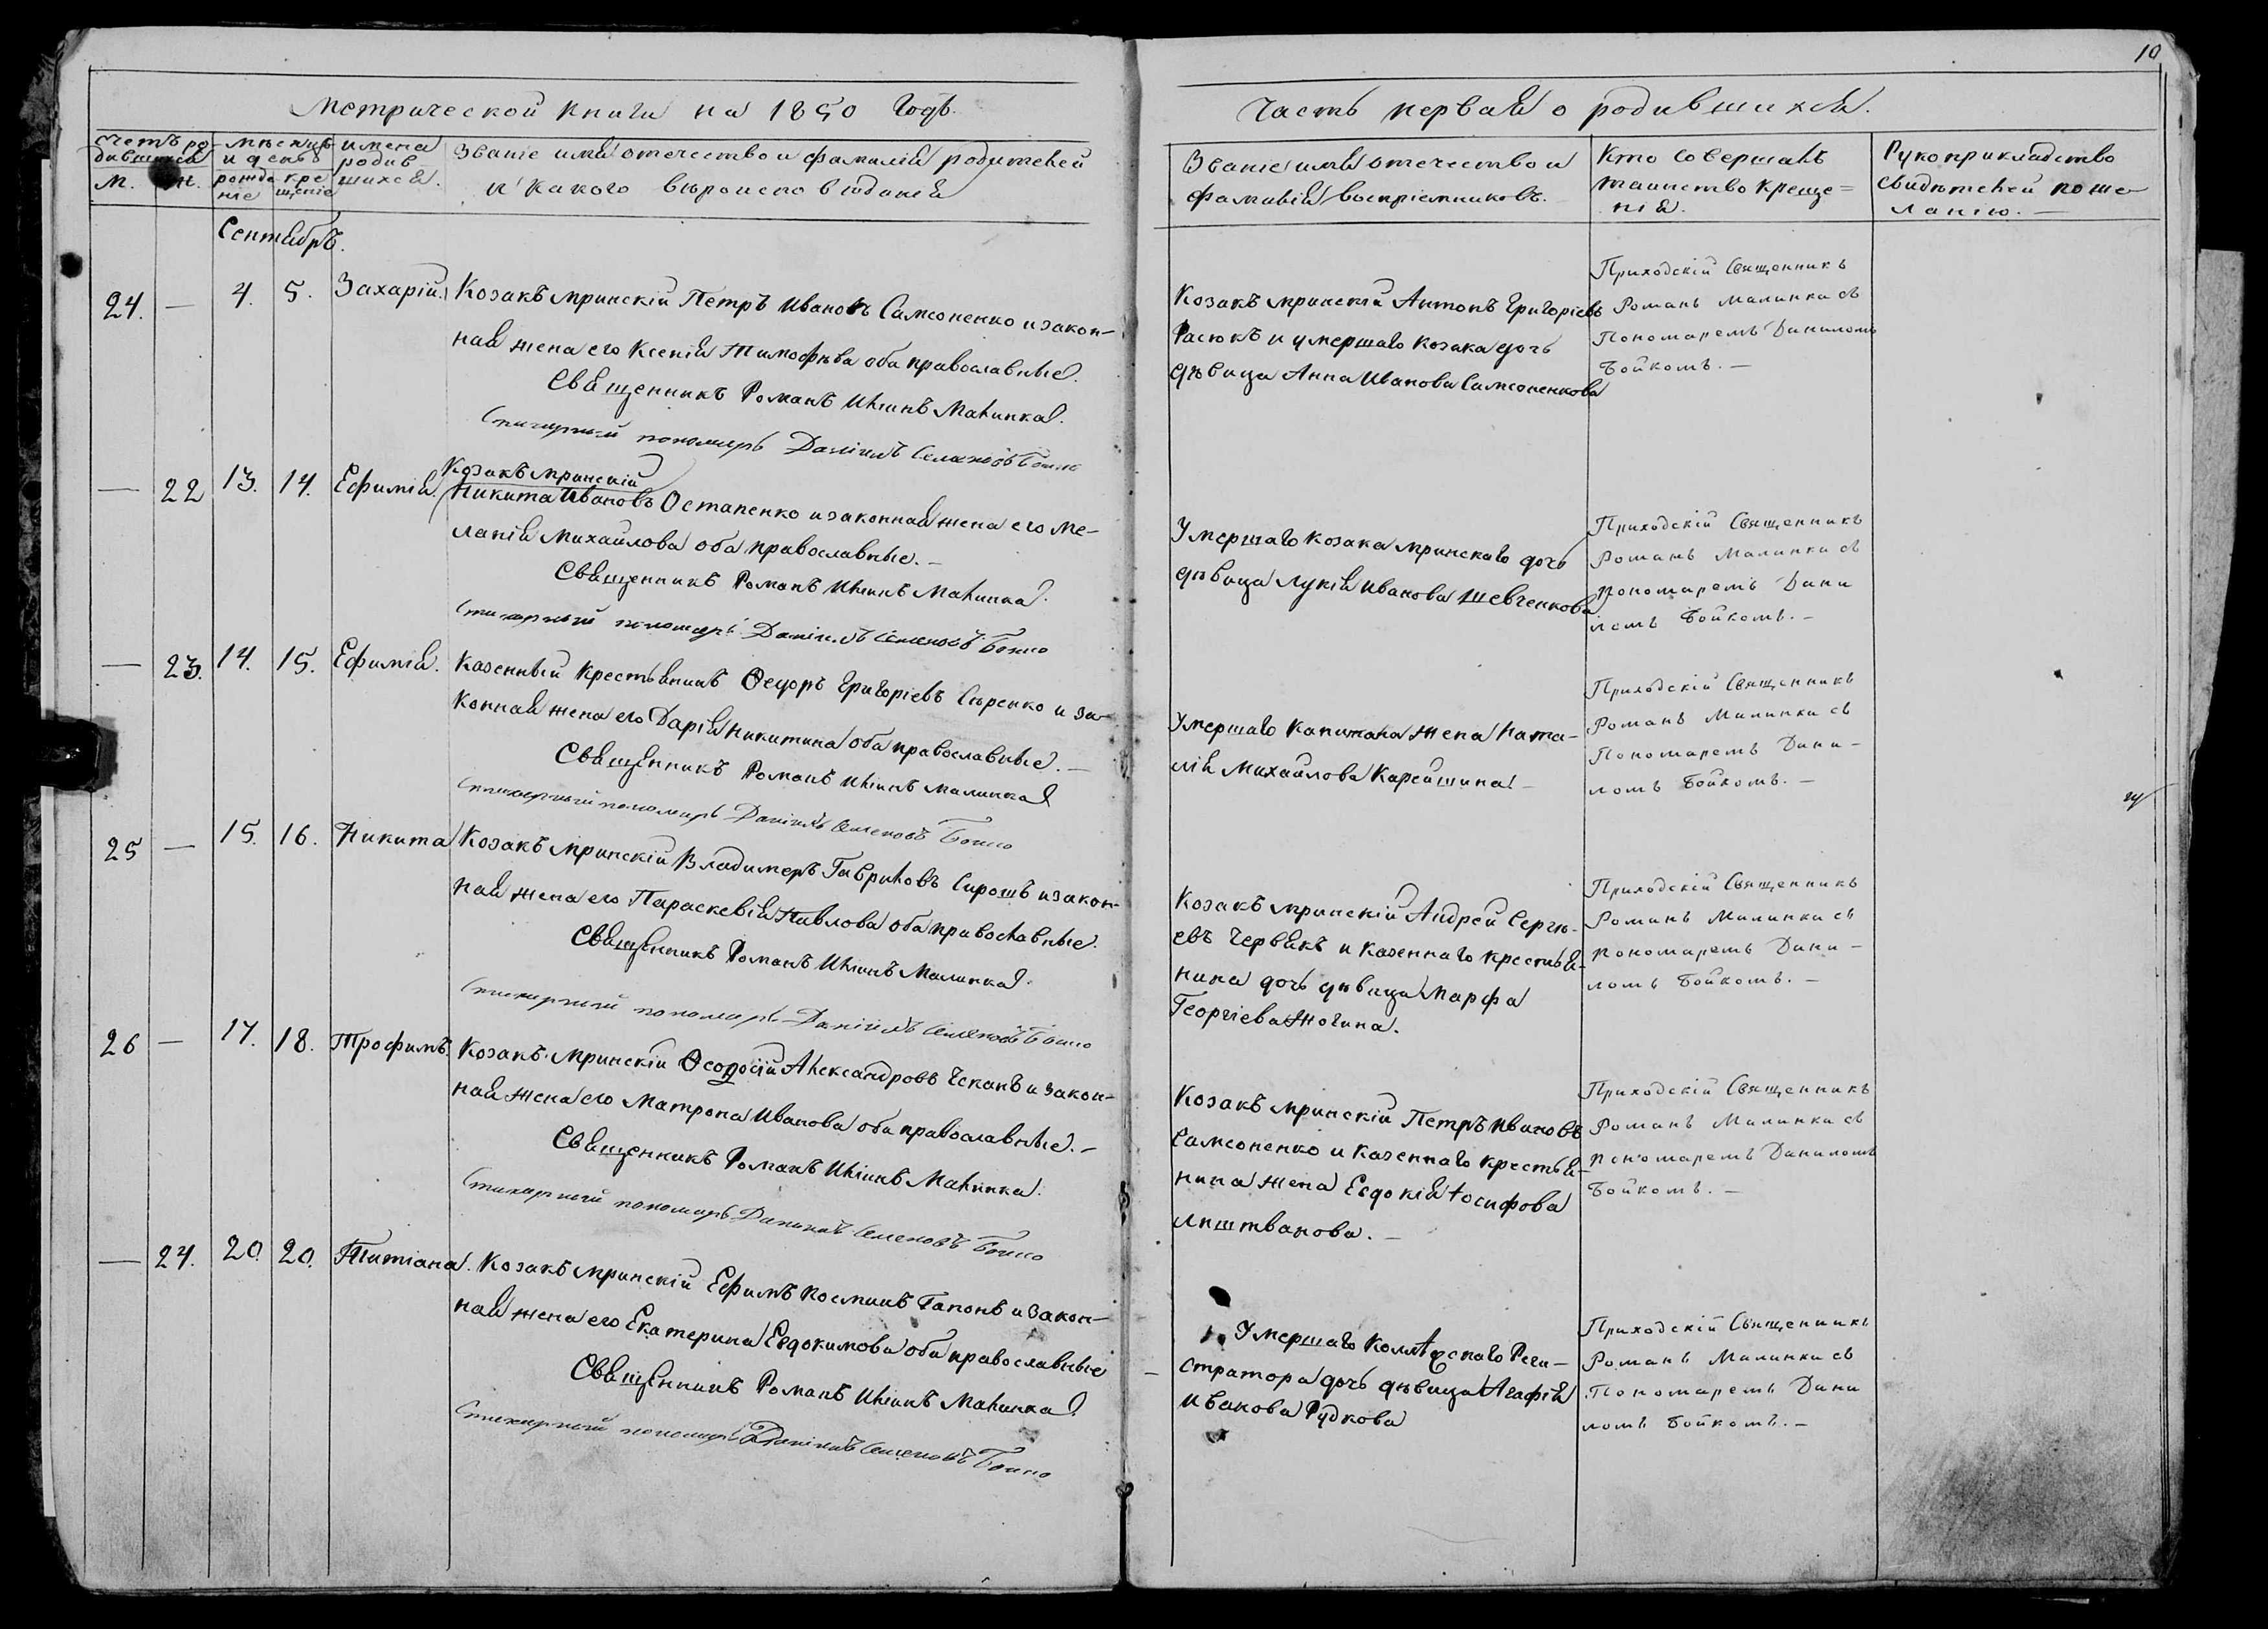 10
Метрической книги на 1850 Годъ.
Часть первая о родившихся.
Счетъ родившихся
М. Ж.
мѣсяцъ и день
рожденіе
крещеніе
имена родившихся.
Званіе имя отечество и фамилія родителей
и какого вѣроисповѣданія
Званіе имя отечество и
фамилія восприемниковъ.
Кто Совершалъ
таинство Креще=
нія.
Рукоприкладство
свидѣтелей по же-
ланію. —
Сентябрь.
24. — 4. 5. Захарій. Козакъ мринскій Петръ Ивановъ Самсоненко и закон-
ная жена его Ксенія Тимофѣва оба православные.
Священникъ Романъ Иліинъ Малинка.
Стихарный пономарь Даніилъ Семеновъ Бойко
Козакъ мринскій Антонъ Григоріевъ
Расюкъ и умершаго козака дочь
дѣвица Анна Иванова Самсоненкова
Приходскій Священникъ
Романъ Малинка съ
Пономаремъ Даниломъ
Бойкомъ. —
— 22 13. 14. Ефимія. Козакъ мринскій
Никита Ивановъ Остапенко и законная жена его Ме-
ланія Михайлова оба православные. —
Священникъ Романъ Иліинъ Малинка.
Стихарный пономарь Даніилъ Семеновъ Бойко
Умершаго Козака мринскаго дочь
дѣвица Лукія Иванова Шевченкова
Приходскій Священникъ
Романъ Малинка съ
пономаремъ Дани
ломъ Бойкомъ. —
— 23. 14. 15. Ефимія. Казенный Крестьянинъ Ѳедоръ Григоріевъ Сѣренко и за-
конная жена его Дарія Никитина оба православные. —
Священникъ Романъ Иліинъ Малинка
Стихарный пономарь Даніилъ Семеновъ Бойко
Умершаго Капитана жена Ната-
лія Михайлова Карейшина —
Приходскій Священникъ
Романъ Малинка съ
Пономаремъ Дани-
ломъ Бойкомъ. —
25 — 15. 16. Никита Козакъ мринскій Владимеръ Гавриловъ Сирошъ и закон-
ная жена его Параскевія Павлова оба православные.
Священникъ Романъ Иліинъ Малинка.
Стихарный пономарь Даніилъ Семеновъ Бойко
Козакъ мринскій Андрей Сергѣ-
евъ Червякъ и казеннаго крестья-
нина дочь дѣвица Марфа
Георгіева Жогина.
Приходскій Священникъ
Романъ Малинка съ
пономаремъ Дани-
ломъ Бойкомъ. —
26 — 17. 18. Трофимъ. Козакъ Мринскій Ѳеодосій Александровъ Чеканъ и закон-
ная жена его Матрона Иванова оба православные. —
Священникъ Романъ Иліинъ Малинка.
Стихарный пономарь Даніилъ Семеновъ Бойко
Козакъ мринскій Петръ Ивановъ
Самсоненко и казеннаго крестья-
нина жена Евдокія Іосифова
Лиштванова. —
Приходскій Священникъ
Романъ Малинка съ
пономаремъ Даниломъ
Бойкомъ. —
— 24. 20. 20. Татіана. Козакъ мринскій Ефимъ Косминъ Гапонъ и закон-
ная жена его Екатерина Евдокимова оба православные
Священникъ Романъ Иліинъ Малинка.
Стихарный пономарь Даніилъ Семеновъ Бойко
Умершаго Реги-
стратора дочь дѣвица Агафія
Иванова Рудкова
Приходскій Священникъ
Романъ Малинка съ
Пономаремъ Дани
ломъ Бойкомъ. —